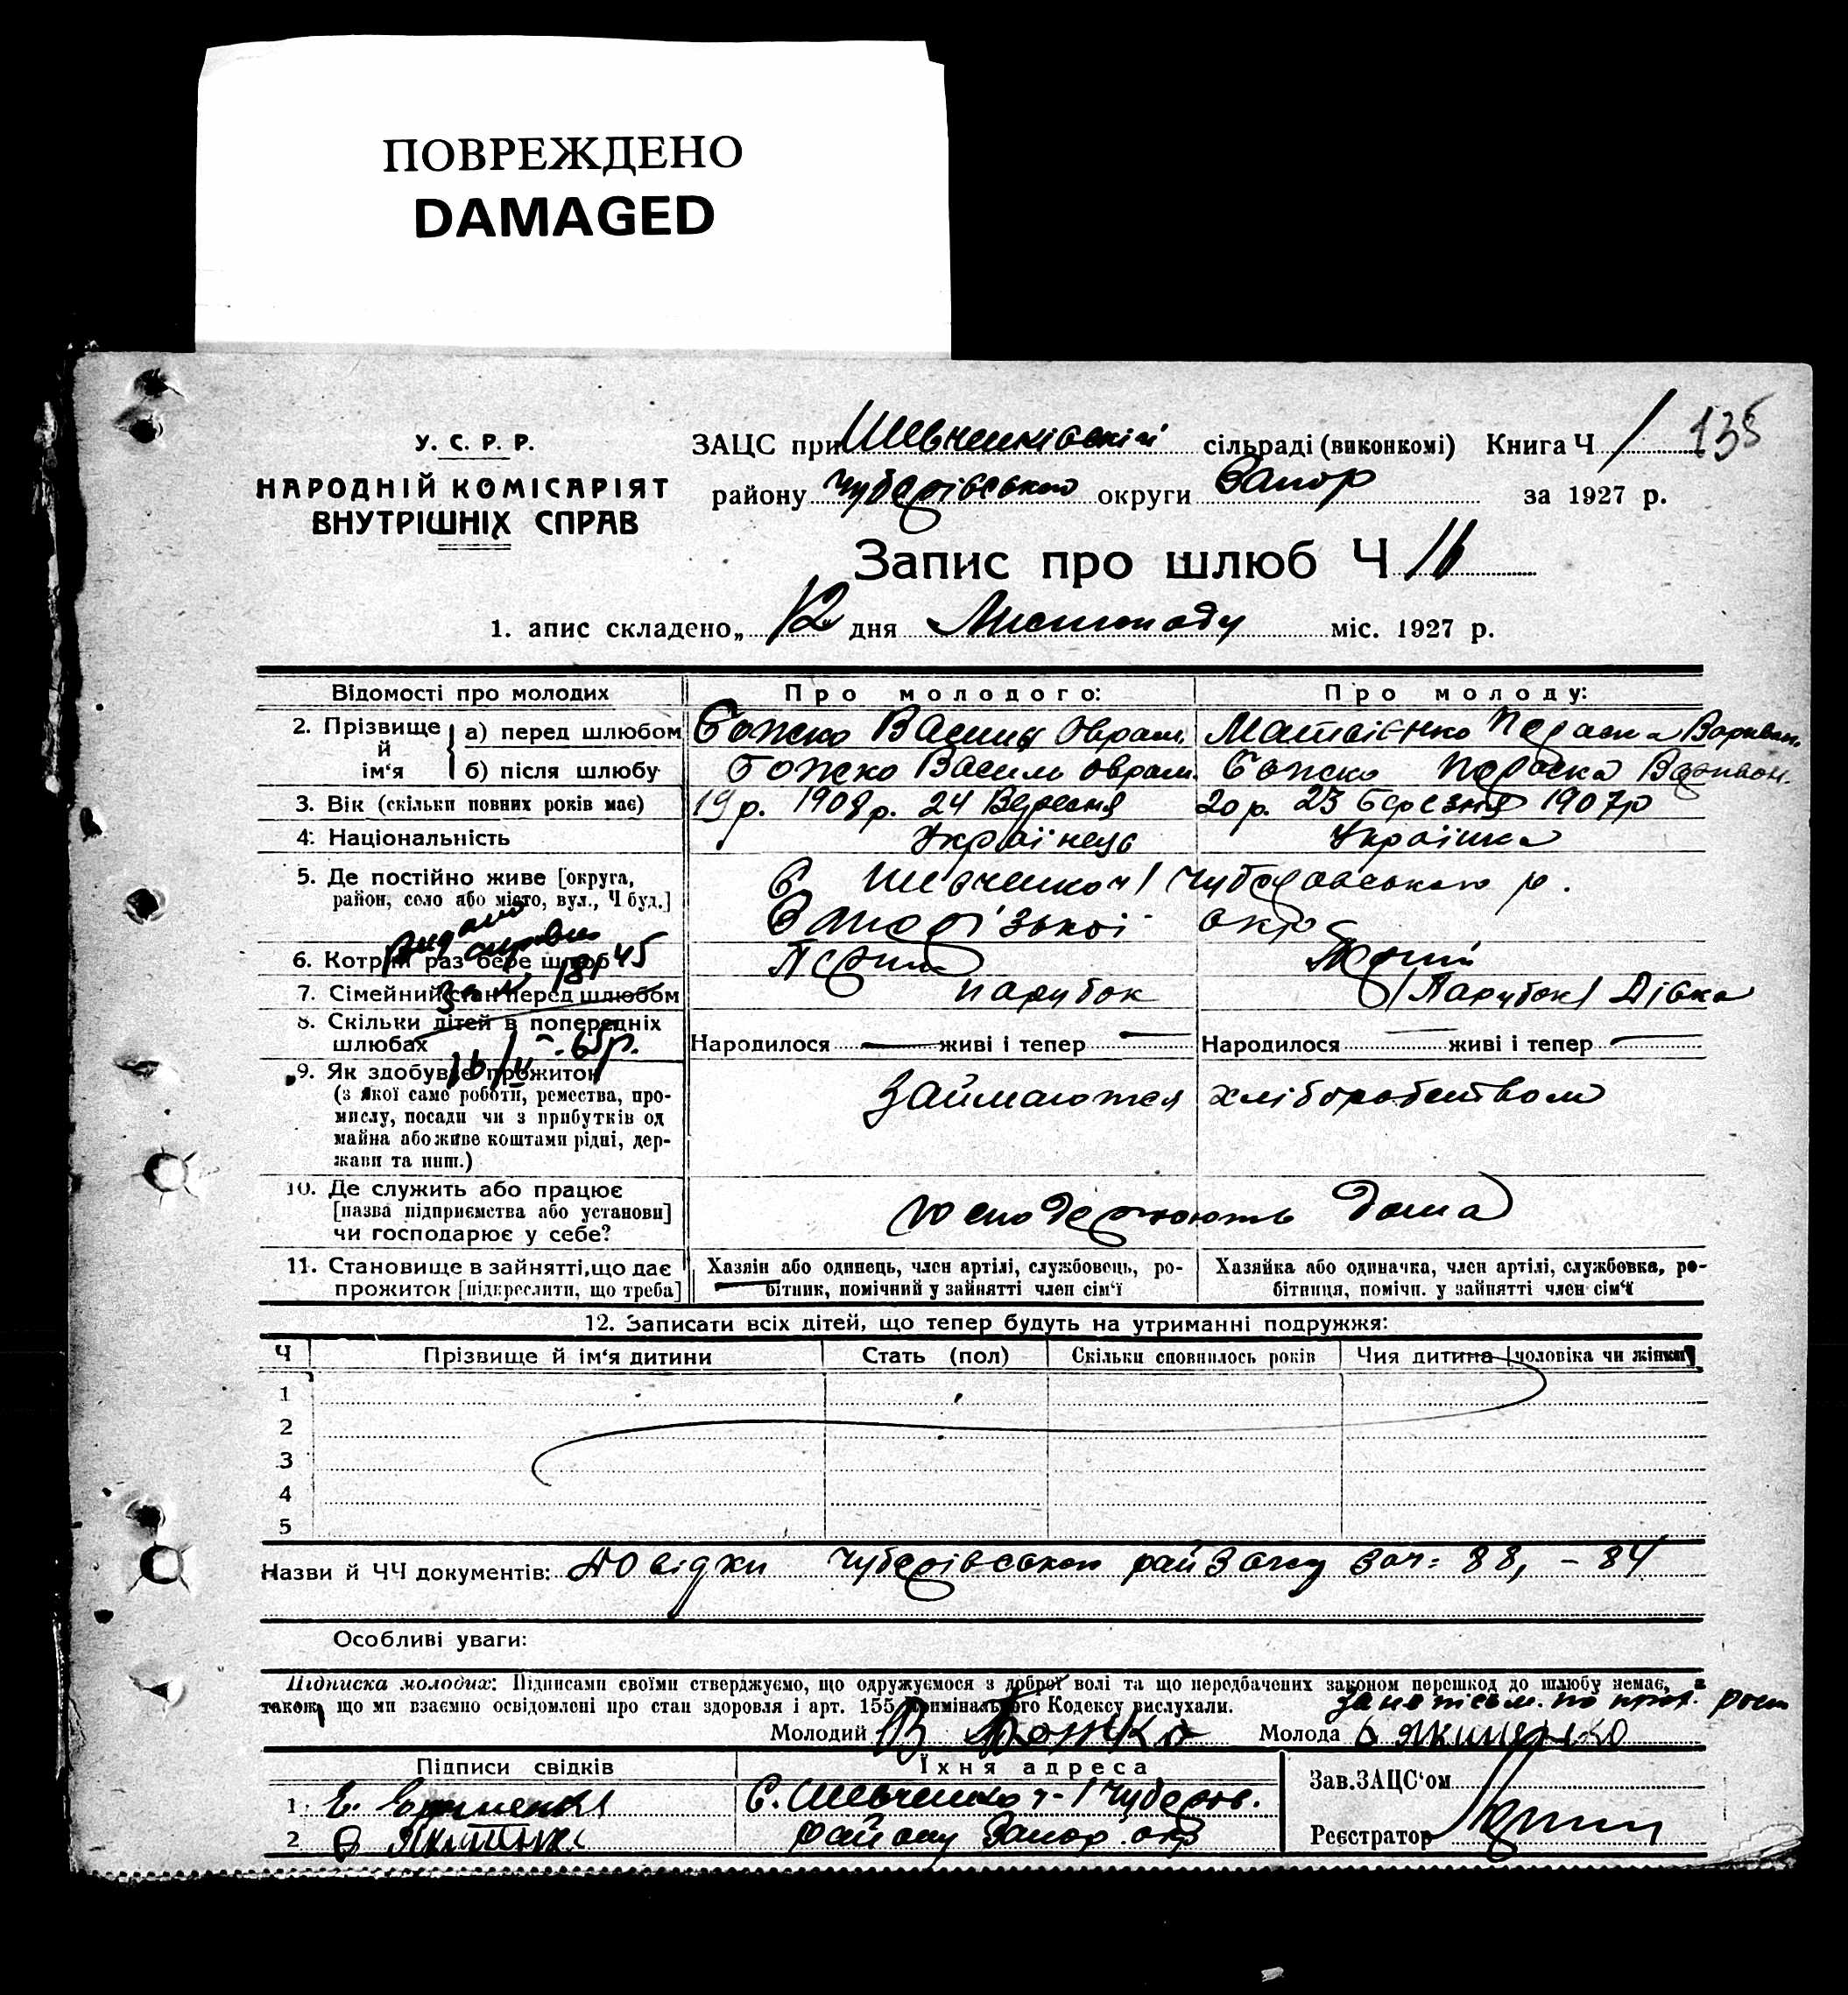 ПОВРЕЖДЕНО
DAMAGED
135
У. С. Р. Р.
НАРОДНІЙ КОМІСАРІЯТ
ВНУТРІШНІХ СПРАВ
ЗАЦС при Шевченківській сільраді (виконкомі) Книга Ч 1
району Чубарівського округи Запор за 1927 р.
Запис про шлюб Ч 16
1. апис складено „ 12 дня Листопаду міс. 1927 р.
Відомості про молодих Про молодого: Про молоду:
2. Прізвище й ім‘я а) перед шлюбом Божко Василь Оврам. Матвієнко Параска Вариван.
б) після шлюбу Божко Василь Оврам. Божко Параска Вариван.
3. Вік (скільки повних років має) 19 р. 1908 р. 24 Вересня 20 р. 23 Березня 1907 р
4. Національність Українець Українка
5. Де постійно живе [округа, район, село або місто, вул., Ч буд.] С. Шевченко ч 1 Чубарівського р.
Запорізької окр
6. Котрий раз бере шлюб Перший Перший
7. Сімейний стан перед шлюбом парубок (Парубок) Дівка
8. Скільки дітей в попередніх шлюбах Народилося — живі і тепер — Народилося — живі і тепер —
9. Як здобуває прожиток Займаються хліборобством
(з якої саме роботи, ремества, про-
мислу, посади чи з прибутків од
майна або живе коштами рідні, дер-
жави та инш.)
10. Де служить або працює
[назва підприємства або установи] господарюють дома
чи господарює у себе?
11. Становище в зайнятті, що дає Хазяїн або одинець, член артілі, службовець, ро- Хазяйка або одиначка, член артілі, службовка, ро-
прожиток [підкреслити, що треба] бітник, помічний у зайнятті член сім‘ї бітниця, помічн. у зайнятті член сім‘ї
12. Записати всіх дітей, що тепер будуть на утриманні подружжя:
Ч Прізвище й ім‘я дитини Стать (пол) Скільки сповнилось років Чия дитина [чоловіка чи жінки]
1
2
3
4
5
Назви й ЧЧ документів: Довідки Чубарівського рай Зачсу за ч: 88, – 84
Особливі уваги:
Підписка молодих: Підписами своїми стверджуємо, що одружуємося з доброї волі та що передбачених законом перешкод до шлюбу немає, а
також, що ми взаємно освідомлені про стан здоровля і арт. 155 Кримінального Кодексу вислухали.
Молодий В Божко Молода
Підписи свідків Їхня адреса Зав. ЗАЦС‘ом
1 С. Шевченко ч-1 Чубарів.
2 району Запор. окр Реєстратор